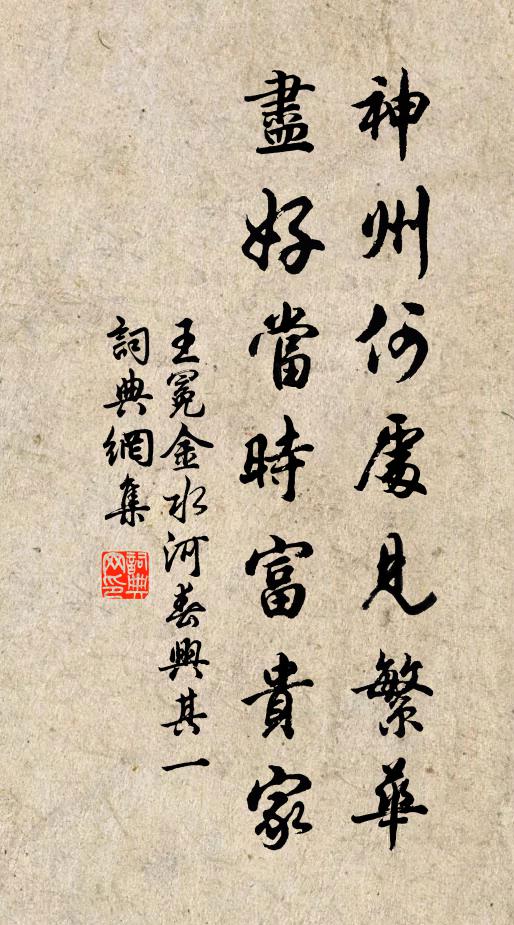 神州何處見繁華
盡好當時富貴家
王冕金水河春興其一
詞典網集
詞典網印